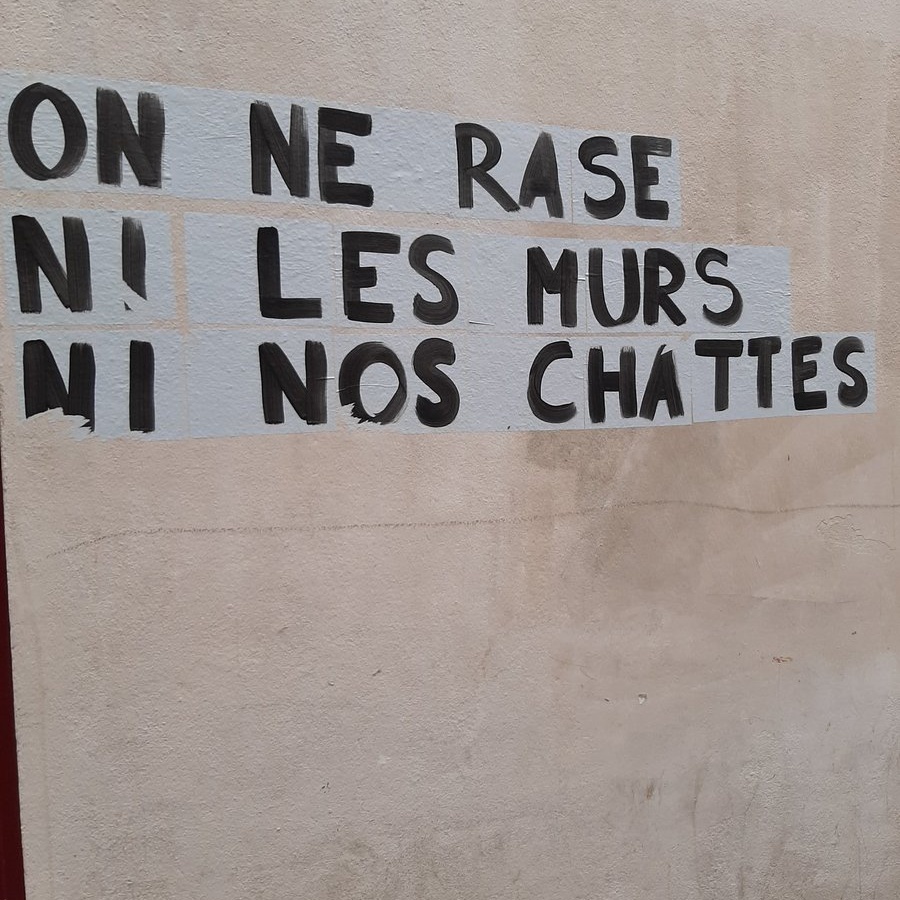 ON NE RASE
NI LES MURS
NI NOS CHATTES